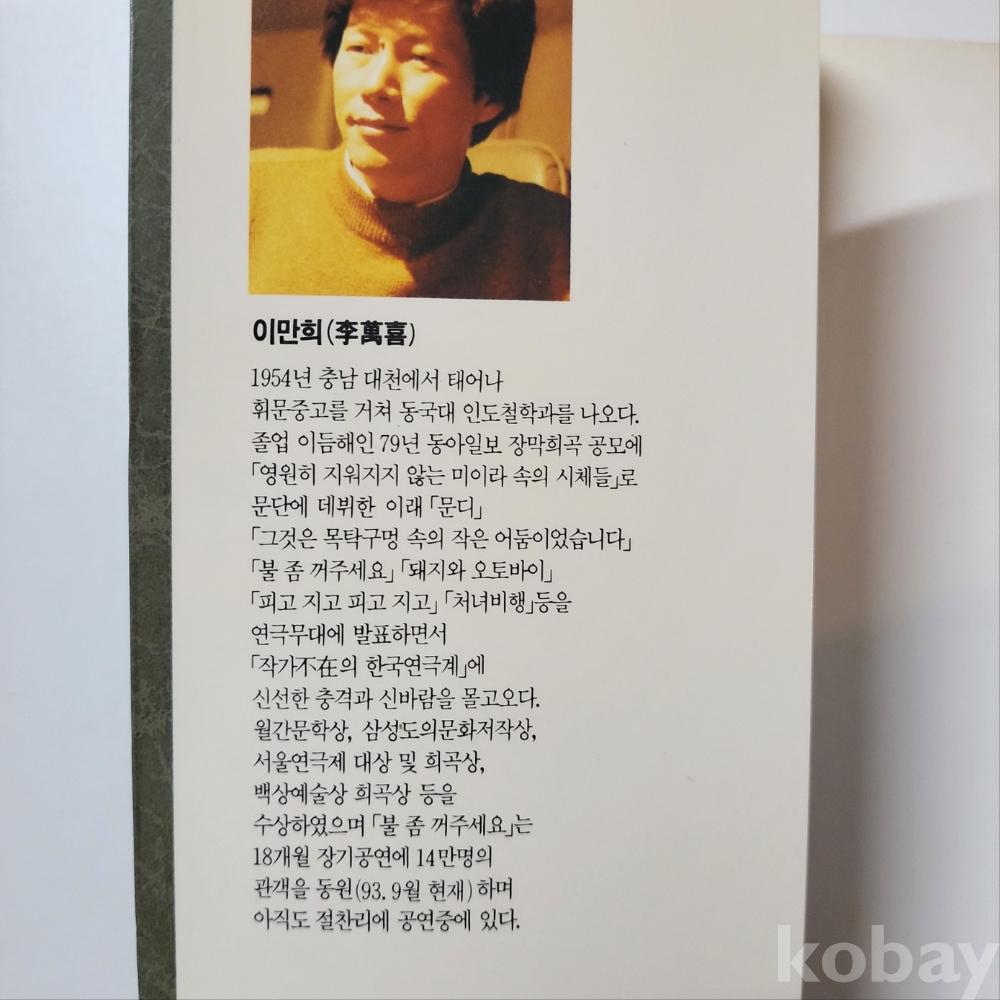 이만희(李萬喜)
1954년 충남 대천에서 태어나
휘문중고를 거쳐 동국대 인도철학과를 나오다.
졸업 이듬해인 79년 동아일보 장막희곡 공모에
「영원히 지워지지 않는 미이라 속의 시체들」로
문단에 데뷔한 이래 「문디」
「그것은 목탁구멍 속의 작은 어둠이었습니다」
「불 좀 꺼주세요」 「돼지와 오토바이」
「피고 지고 피고 지고」 「처녀비행」등을
연극무대에 발표하면서
「작가不在의 한국연극계」에
신선한 충격과 신바람을 몰고오다.
월간문학상, 삼성도의문화저작상,
서울연극제 대상 및 희곡상,
백상예술상 희곡상 등을
수상하였으며 「불 좀 꺼주세요」는
18개월 장기공연에 14만명의
관객을 동원(93. 9월 현재)하며
아직도 절찬리에 공연중에 있다.
kobay